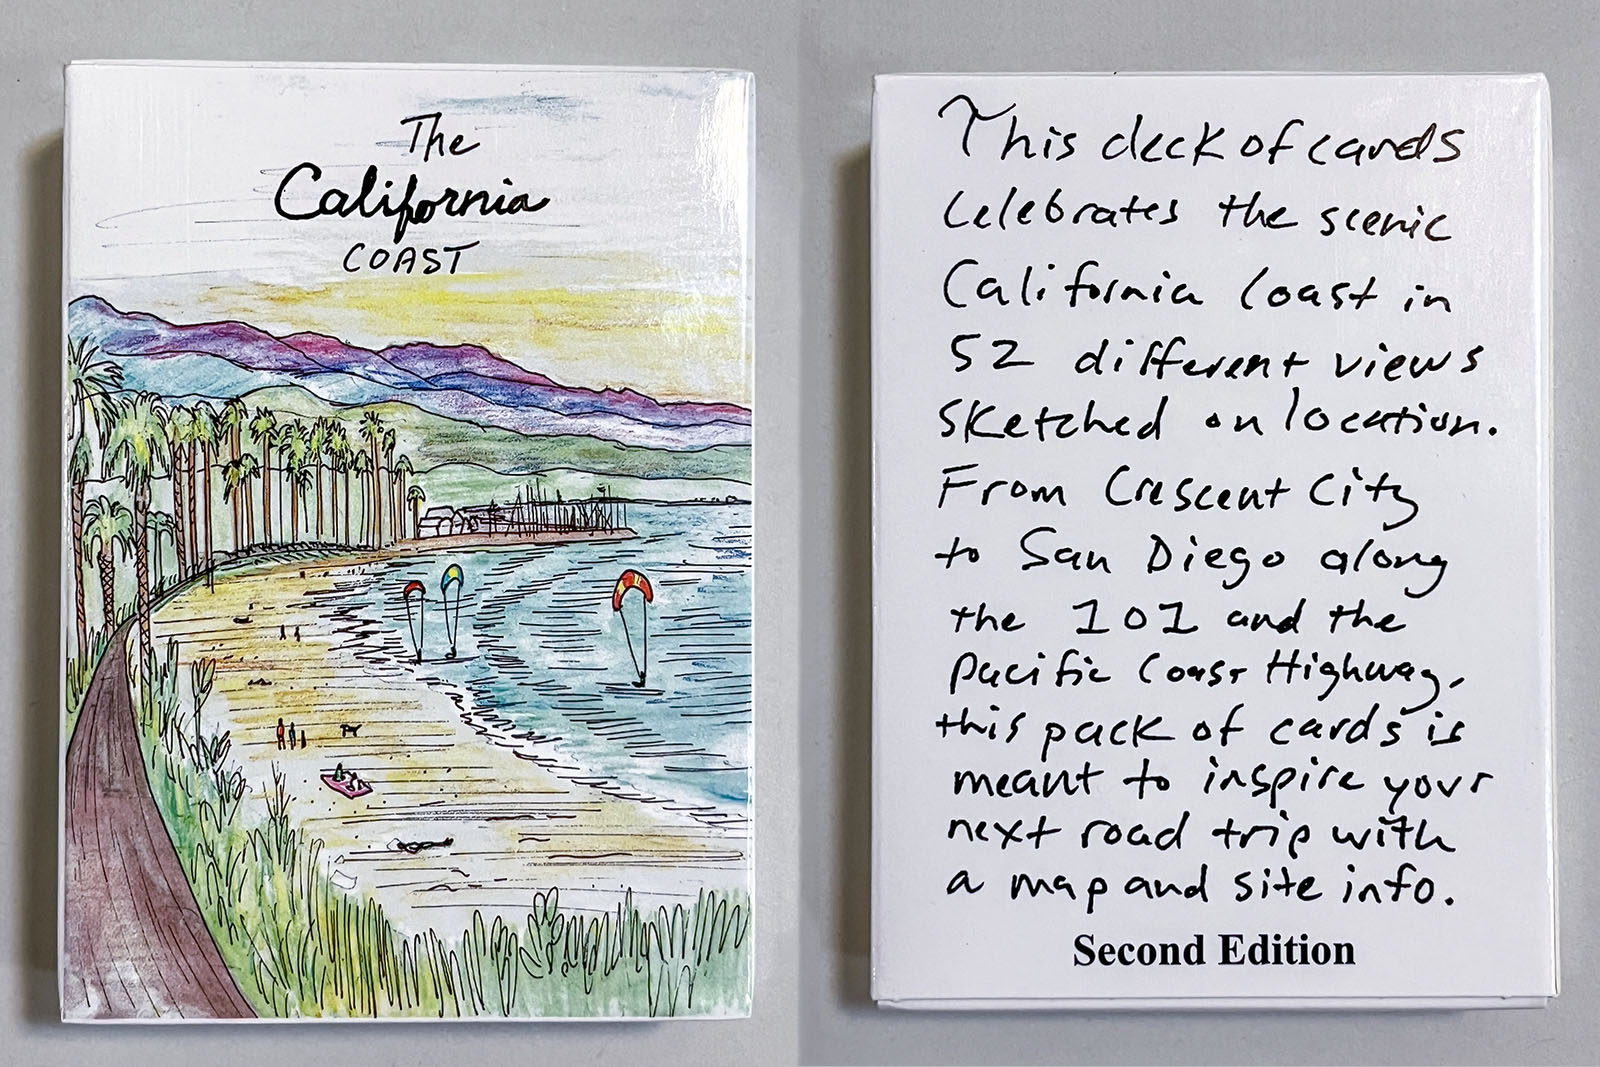 The
California
COAST
This deck of cards
Celebrates the scenic
California Coast in
52 different views
sketched on location.
From Crescent City
to San Diego along
the 101 and the
Pacific Coast Highway,
this pack of cards is
meant to inspire your
next road trip with
a map and site info.
Second Edition